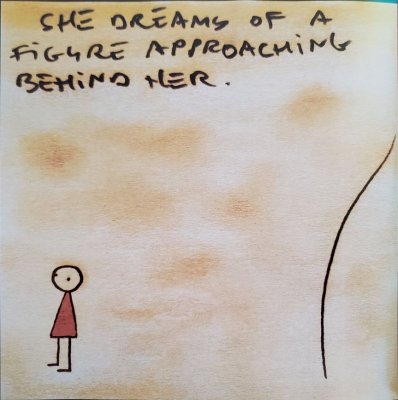 SHE DREAMS OF A
FIGURE APPROACHING
BEHIND HER.